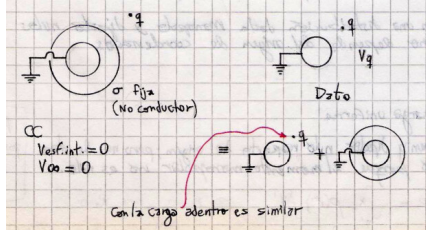 • q
• q
V q
σ fija
(No conductor)
Dato
CC
Vesf.int. = 0
V∞ = 0
≡
• q
+
Con la carga adentro es similar